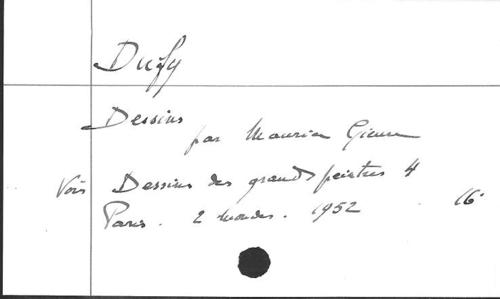 Dufy
Dessins
par Maurice Gieure
Voir Dessins des grands peintres 4
Paris. 2 mondes. 1952. 16°